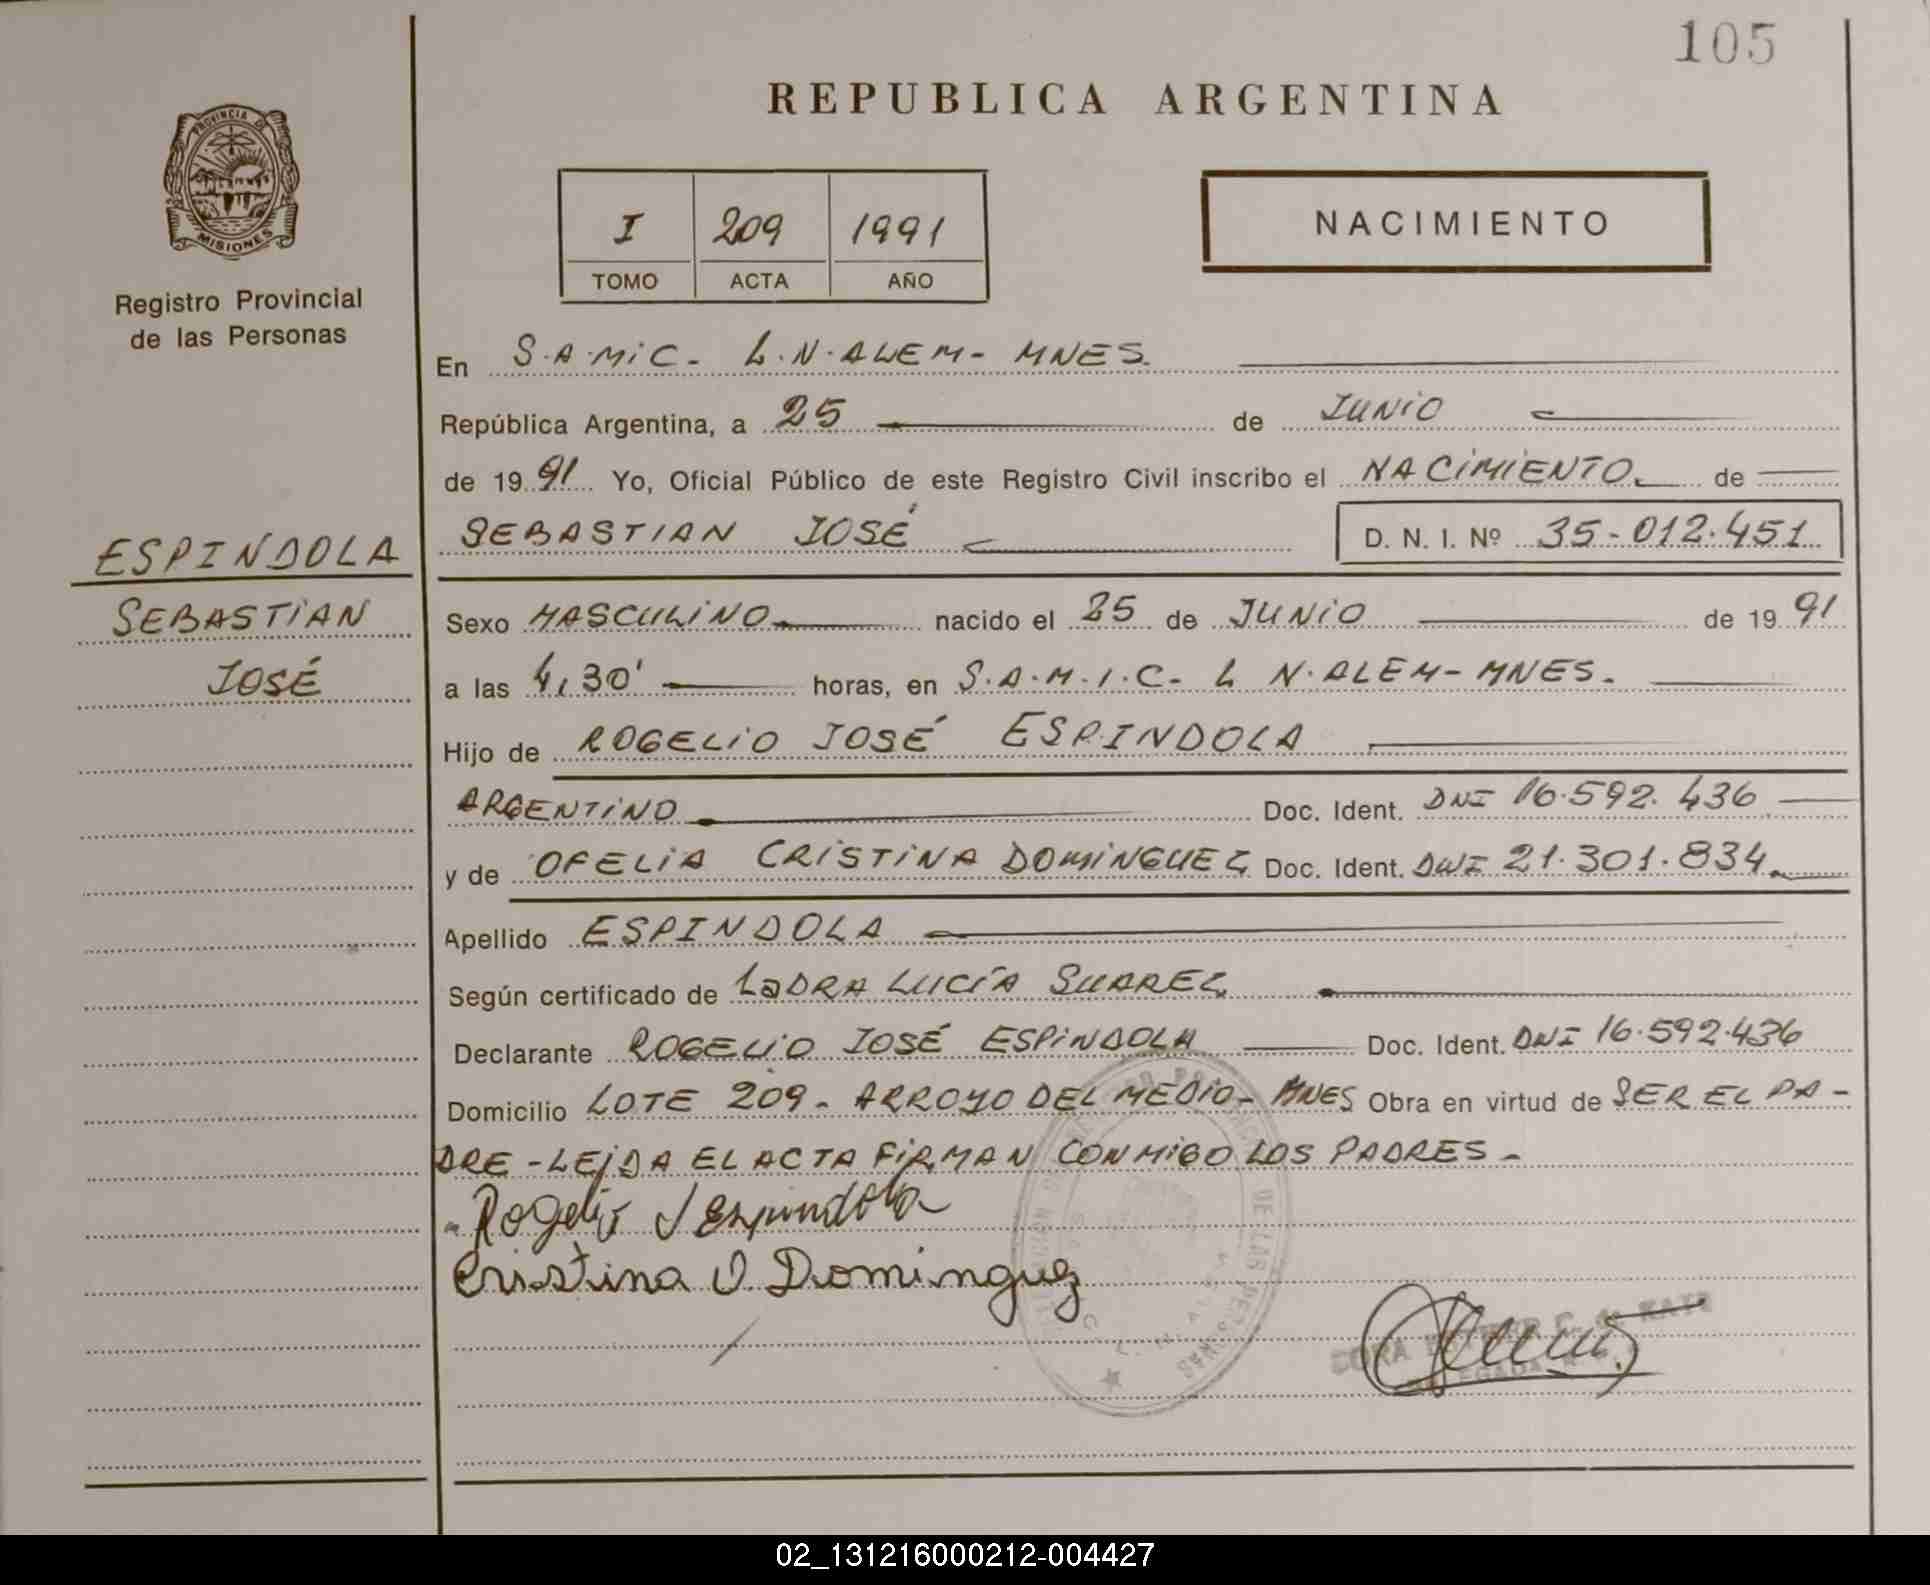 105
REPUBLICA ARGENTINA
PROVINCIA DE
MISIONES
Registro Provincial
de las Personas
I 209 1991
TOMO ACTA AÑO
NACIMIENTO
En S.A.MiC- L.N.ALEM- MNES.
República Argentina, a 25 de JUNiO
de 1991 Yo, Oficial Público de este Registro Civil inscribo el NACiMiENTO. de
SEBASTIAN JOSÉ D. N. I. Nº 35-012.451
ESPINDOLA
SEBASTiAN
JOSÉ
Sexo MASCULiNO nacido el 25 de JUNiO de 1991
a las 4,30' horas, en S.A.M.I.C- L N.ALEM-MNES.
Hijo de ROGELiO JOSÉ ESPINDOLA
ARGENTiNO Doc. Ident. DNI 16.592.436
y de OFELiA CRiSTiNA DOMiNGUEZ Doc. Ident. DNI 21.301.834
Apellido ESPINDOLA
Según certificado de LaDRA LUCÍA SUAREZ
Declarante ROGELiO JOSÉ ESPiNDOLA Doc. Ident. DNI 16.592.436
Domicilio LOTE 209- ARROYO DEL MEDiO- MNES Obra en virtud de SER EL PA-
DRE-LEiDA EL ACTA FiRMAN CONMiGO LOS PADRES-
Rogelio J Espindola
Cristina O Dominguez
DE LAS PERSONAS
02_131216000212-004427